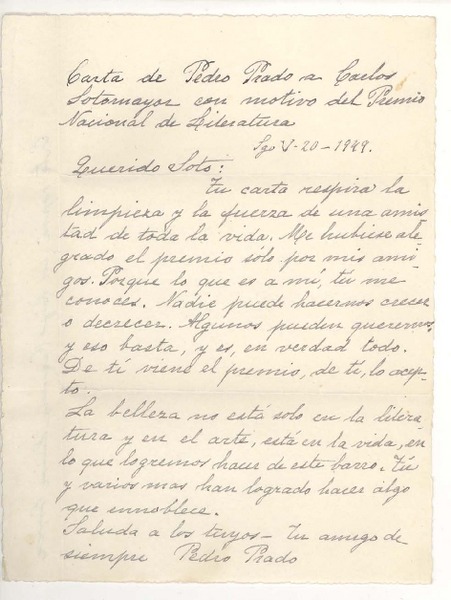 Carta de Pedro Prado a Carlos
Sotomayor con motivo del Premio
Nacional de Literatura
Sgo V-20-1949.
Querido Soto:
Tu carta respira la
limpieza y la fuerza de una amis
tad de toda la vida. Me hubiese ale-
grado el premio sólo por mis ami-
gos. Porque lo que es a mí, tú me
conoces. Nadie puede hacernos crecer
o decrecer. Algunos pueden querernos
y eso basta, y es, en verdad todo.
De tí viene el premio, de tí, lo acep-
to.
La belleza no está solo en la litera-
tura y en el arte, está en la vida, en
lo que logremos hacer de este barro. Tú
y varios mas han logrado hacer algo
que ennoblece.
Saluda a los tuyos - tu amigo de
siempre Pedro Prado